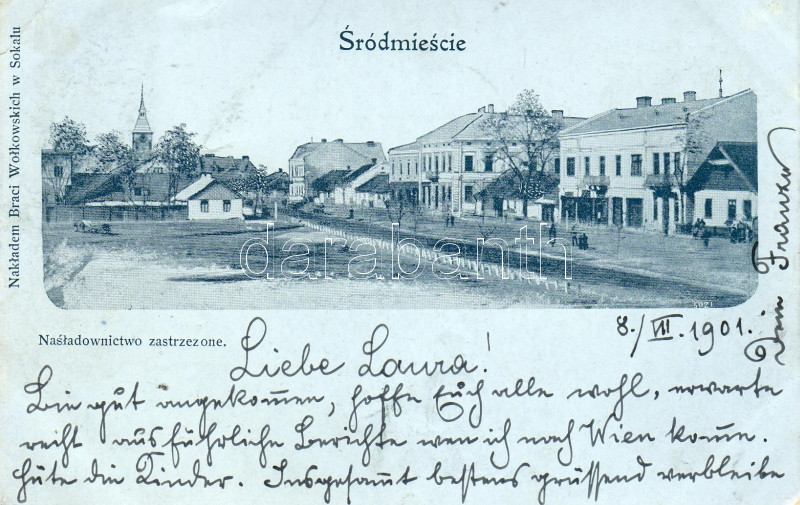 Śródmieście
Nakładem Braci Wołkowskich w Sokalu
darabanth
Naśladownictwo zastrzezone.
8./VII. 1901.
Liebe Laura!
Bin gut angekommen, hoffe Euch alle wohl, erwarte
recht ausführliche Berichte wen ich nach Wien komme.
hüte die Kinder. Insgesammt bestens grüssend verbleibe